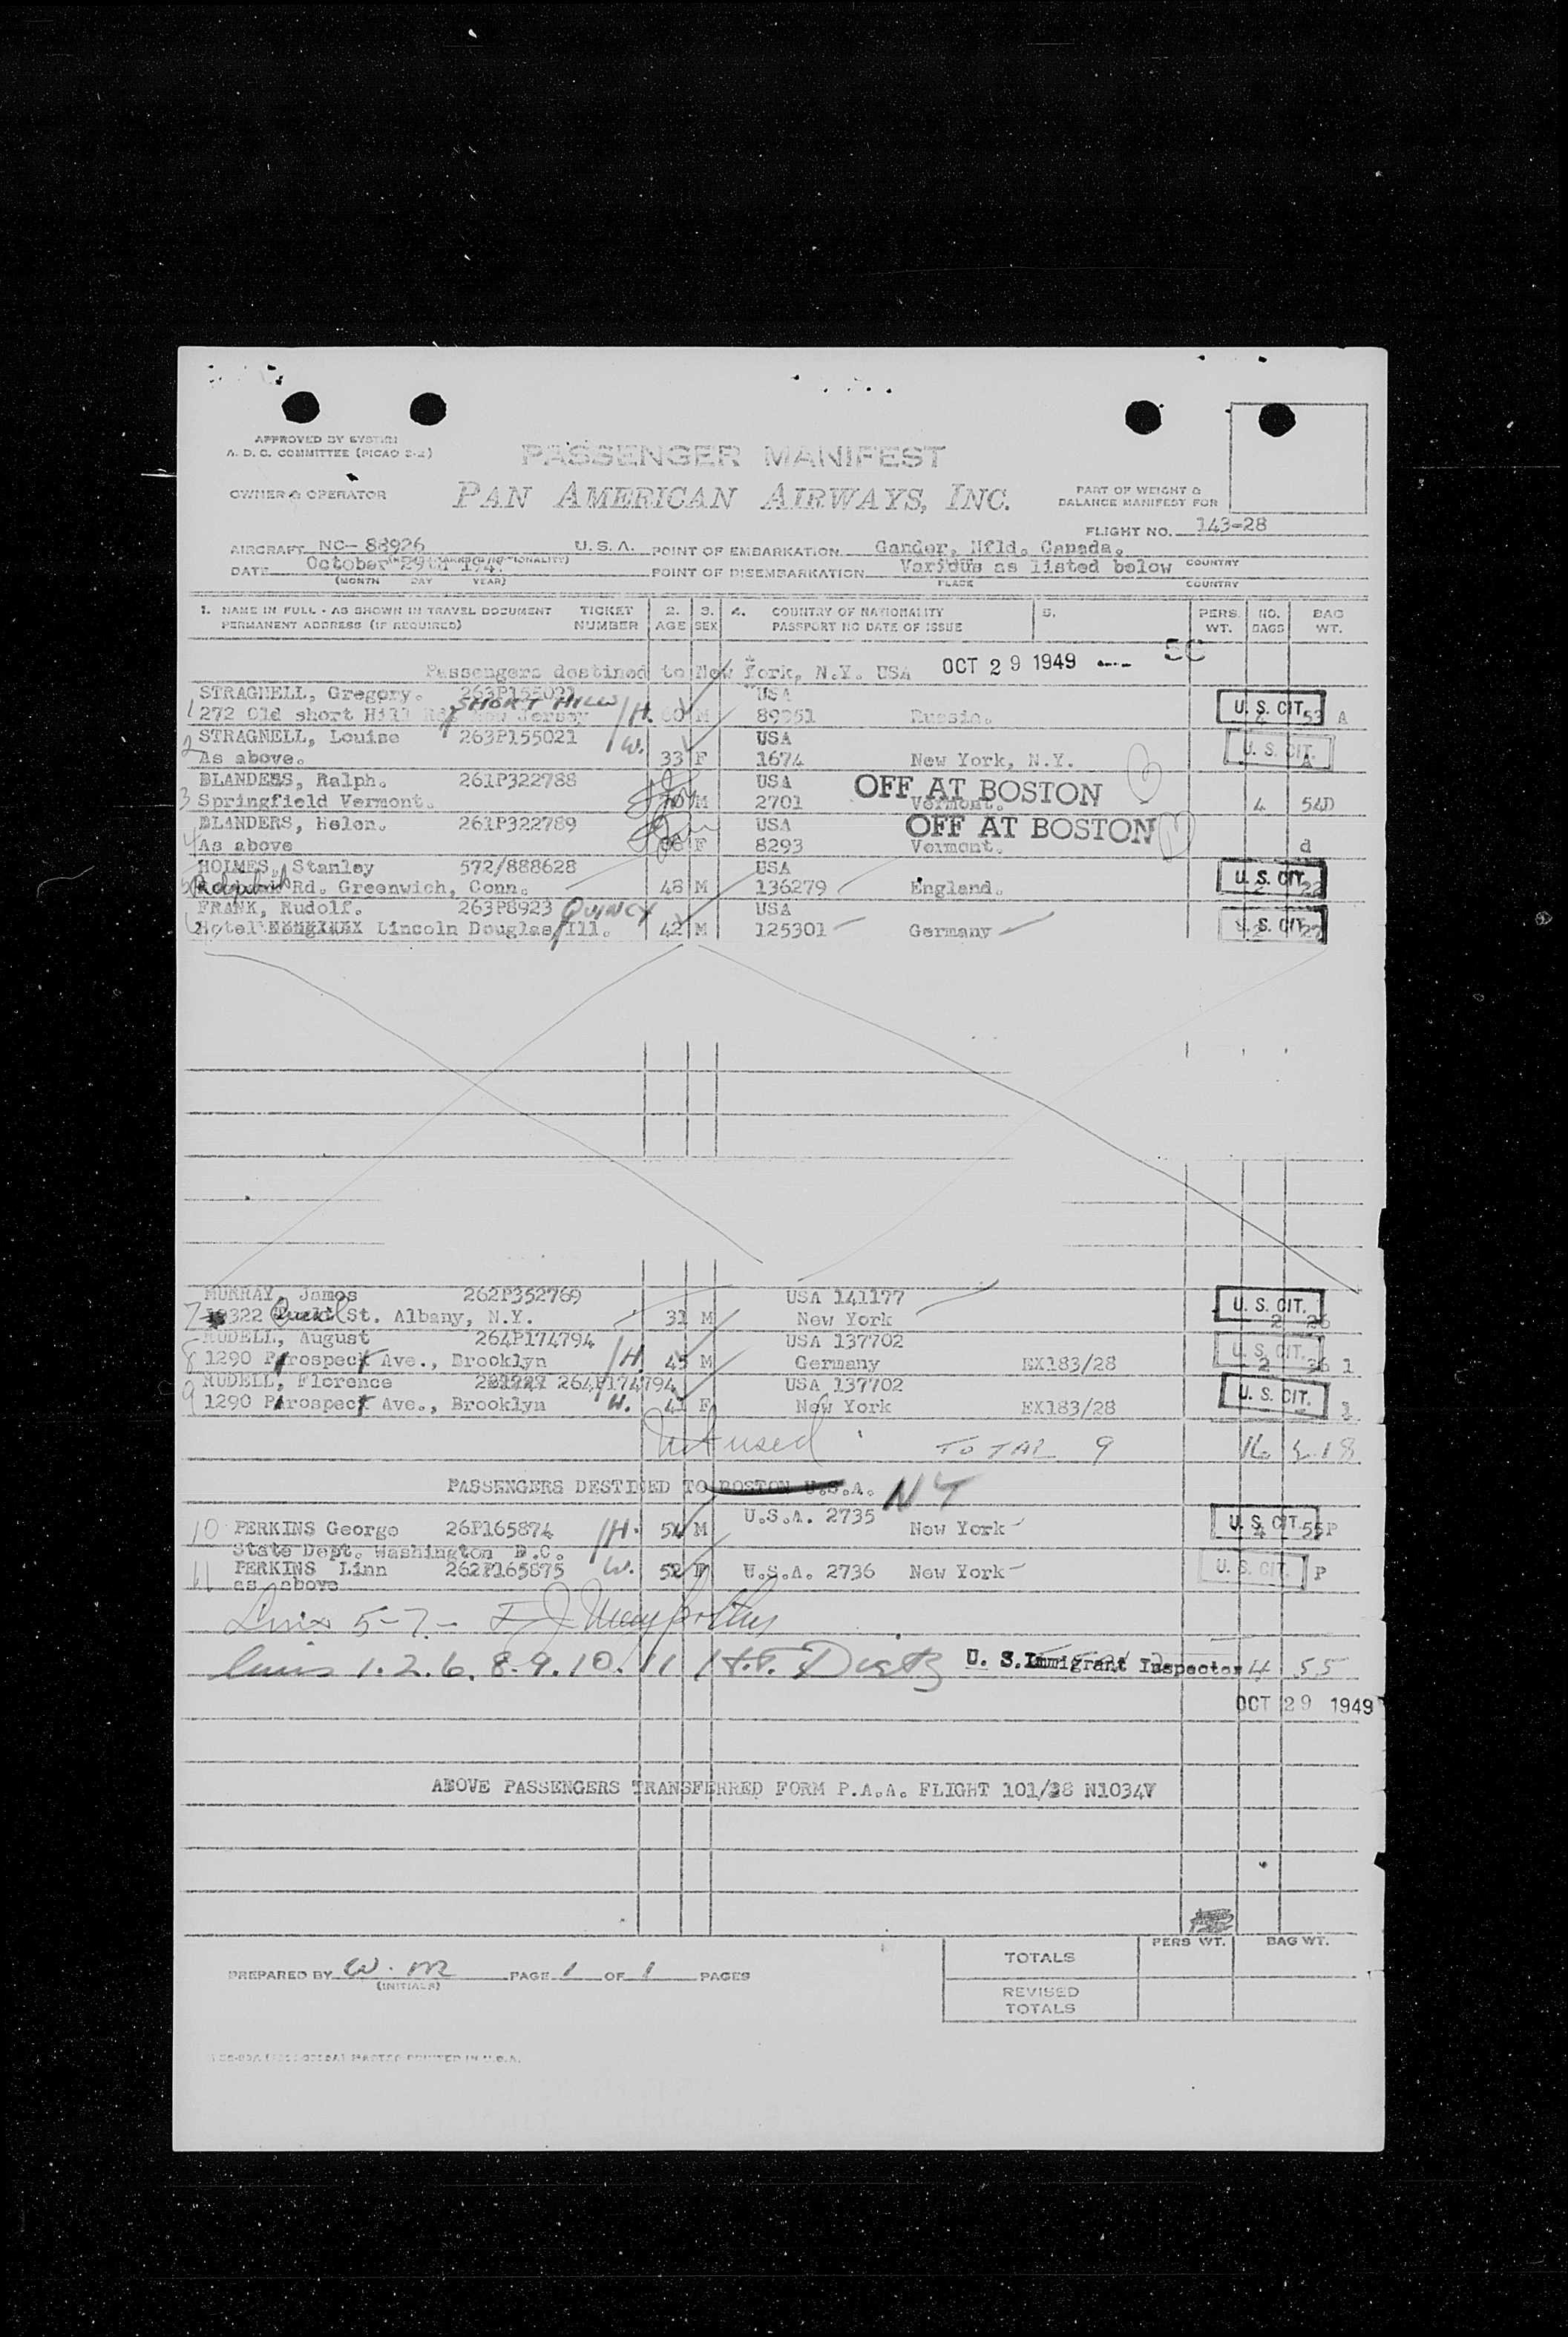 APPROVED BY SYSTEM
A. D. C. COMMITTEE (PICAO 2-2)
PASSENGER MANIFEST
OWNER & OPERATOR
PAN AMERICAN AIRWAYS, INC.
PART OF WEIGHT &
BALANCE MANIFEST FOR
FLIGHT NO. 143-28
AIRCRAFT NC- 88926 U.S.A. POINT OF EMBARKATION Gander, Nfld. Canada.
DATE October 29th 194 POINT OF DISEMBARKATION Various as listed below COUNTRY
(MONTH DAY YEAR) PLACE COUNTRY
1. NAME IN FULL - AS SHOWN IN TRAVEL DOCUMENT TICKET 2. 3. 4. COUNTRY OF NATIONALITY 5. PERS. NO. BAG
PERMANENT ADDRESS (IF REQUIRED) NUMBER AGE SEX PASSPORT NO DATE OF ISSUE WT. BAGS WT.
Passengers destined to New York, N.Y. USA OCT 29 1949 5C
1 STRAGNELL, Gregory. 263P155021 USA
272 Old short Hill Rd. New Jersey SHORT HILLS H. 60 M 89951 Russia. U. S. CIT. 4 53 A
2 STRAGNELL, Louise 263P155021 W. USA
As above. 33 F 1674 New York, N.Y. U. S. CIT. A
BLANDERS, Ralph. 261P322788 USA OFF AT BOSTON
3 Springfield Vermont. M 2701 Vermont. 4 54D
BLANDERS, Helen. 261P322789 USA OFF AT BOSTON
4 As above F 8293 Vermont. d
HOLMES, Stanley 572/888628 USA
5 Rd. Greenwich, Conn. 48 M 136279 England. U. S. CIT. 2 22
FRANK, Rudolf. 263P8923 QUINCY USA
6 Hotel Lincoln Douglas Ill. 42 M 125301 Germany U. S. CIT. 2 27
MURRAY, James 262P352769 USA 141177
7 322 St. Albany, N.Y. 31 M New York U. S. CIT. 2 26
RUDELL, August 264P174794 USA 137702
8 1290 Prospect Ave., Brooklyn H. 45 M Germany EX183/28 U. S. CIT. 2 36 1
RUDELL, Florence 264P174794 USA 137702
9 1290 Prospect Ave., Brooklyn W. 41 F New York EX183/28 U. S. CIT.
Not used TOTAL 9 16 218
PASSENGERS DESTINED TO BOSTON U.S.A. NY
10 PERKINS George 26P165874 H. 54 M U.S.A. 2735 New York U. S. CIT. 4 55P
State Dept. Washington D.C.
11 PERKINS Linn 262P165875 W. 52 F U.S.A. 2736 New York U. S. CIT. P
as above
5-7-
1. 2. 6. 8. 9. 10. 11 H.F. Dietz U. S. Immigrant Inspector 4 55
OCT 29 1949
ABOVE PASSENGERS TRANSFERRED FORM P.A.A. FLIGHT 101/28 N1034V
PREPARED BY W. M PAGE 1 OF 1 PAGES
(INITIALS)
PERS WT. BAG WT.
TOTALS
REVISED
TOTALS